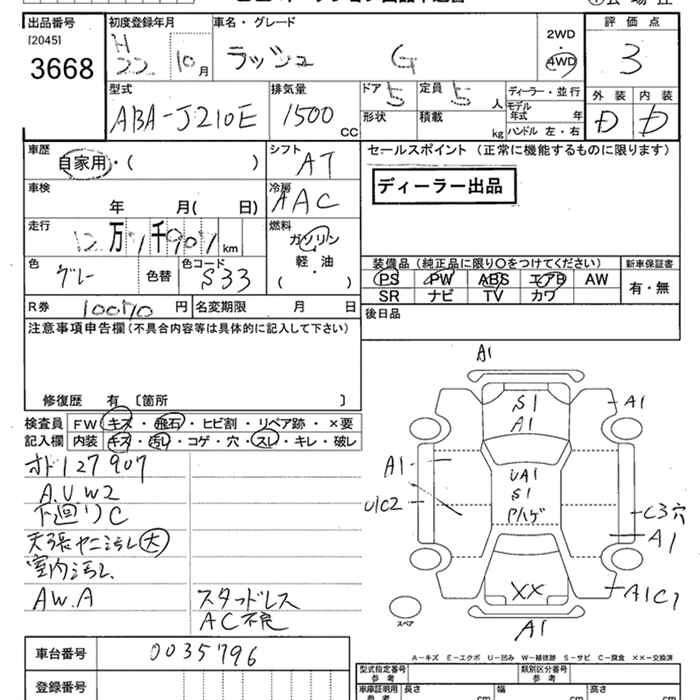 出品番号
[2045]
3668
初度登録年月
H
22
10月
車名・グレード
ラッシュ G
2WD
4WD
評価点
3
型式
ABA-J210E
排気量
1500
CC
ドア
5
定員
5
人
形状
積載
kg
ディーラー・並行
モデル
年式 年
ハンドル 左・右
外装
D
内装
D
車歴
自家用・( )
シフト
AT
セールスポイント (正常に機能するものに限ります)
ディーラー出品
車検
年 月( 日)
冷房
AAC
走行
12万7千907km
燃料
ガソリン
軽・油
( )
色
グレー
色替
色コード
S33
装備品 (純正品に限り〇をつけてください)
新車保証書
PS PW ABS エアB AW
SR ナビ TV カワ
有・無
R券
10070円
名変期限 月 日
後日品
注意事項申告欄 (不具合内容等は具体的に記入して下さい)
修復歴 有 [箇所 ]
検査員
記入欄
FW キズ・飛石・ヒビ割・リペア跡・×要
内装 キズ・汚れ・コゲ・穴・スレ・キレ・破レ
オド127907
A.U W2
下廻りC
天張ヤニ汚レ大
室内汚レ
AW.A
スタッドレス
AC不良
A1
S1
A1
A1
A1
UA1
S1
Pハゲ
U1C2
C3穴
A1
XX
A1C1
A1
スペア
A-キズ E-エクボ U-凹み W-補修跡 S-サビ C-腐食 ××-交換済
車台番号
0035796
登録番号
型式指定番号
参考
類別区分番号
参考
車庫証明用
参考
長さ
cm
幅
cm
高さ
cm